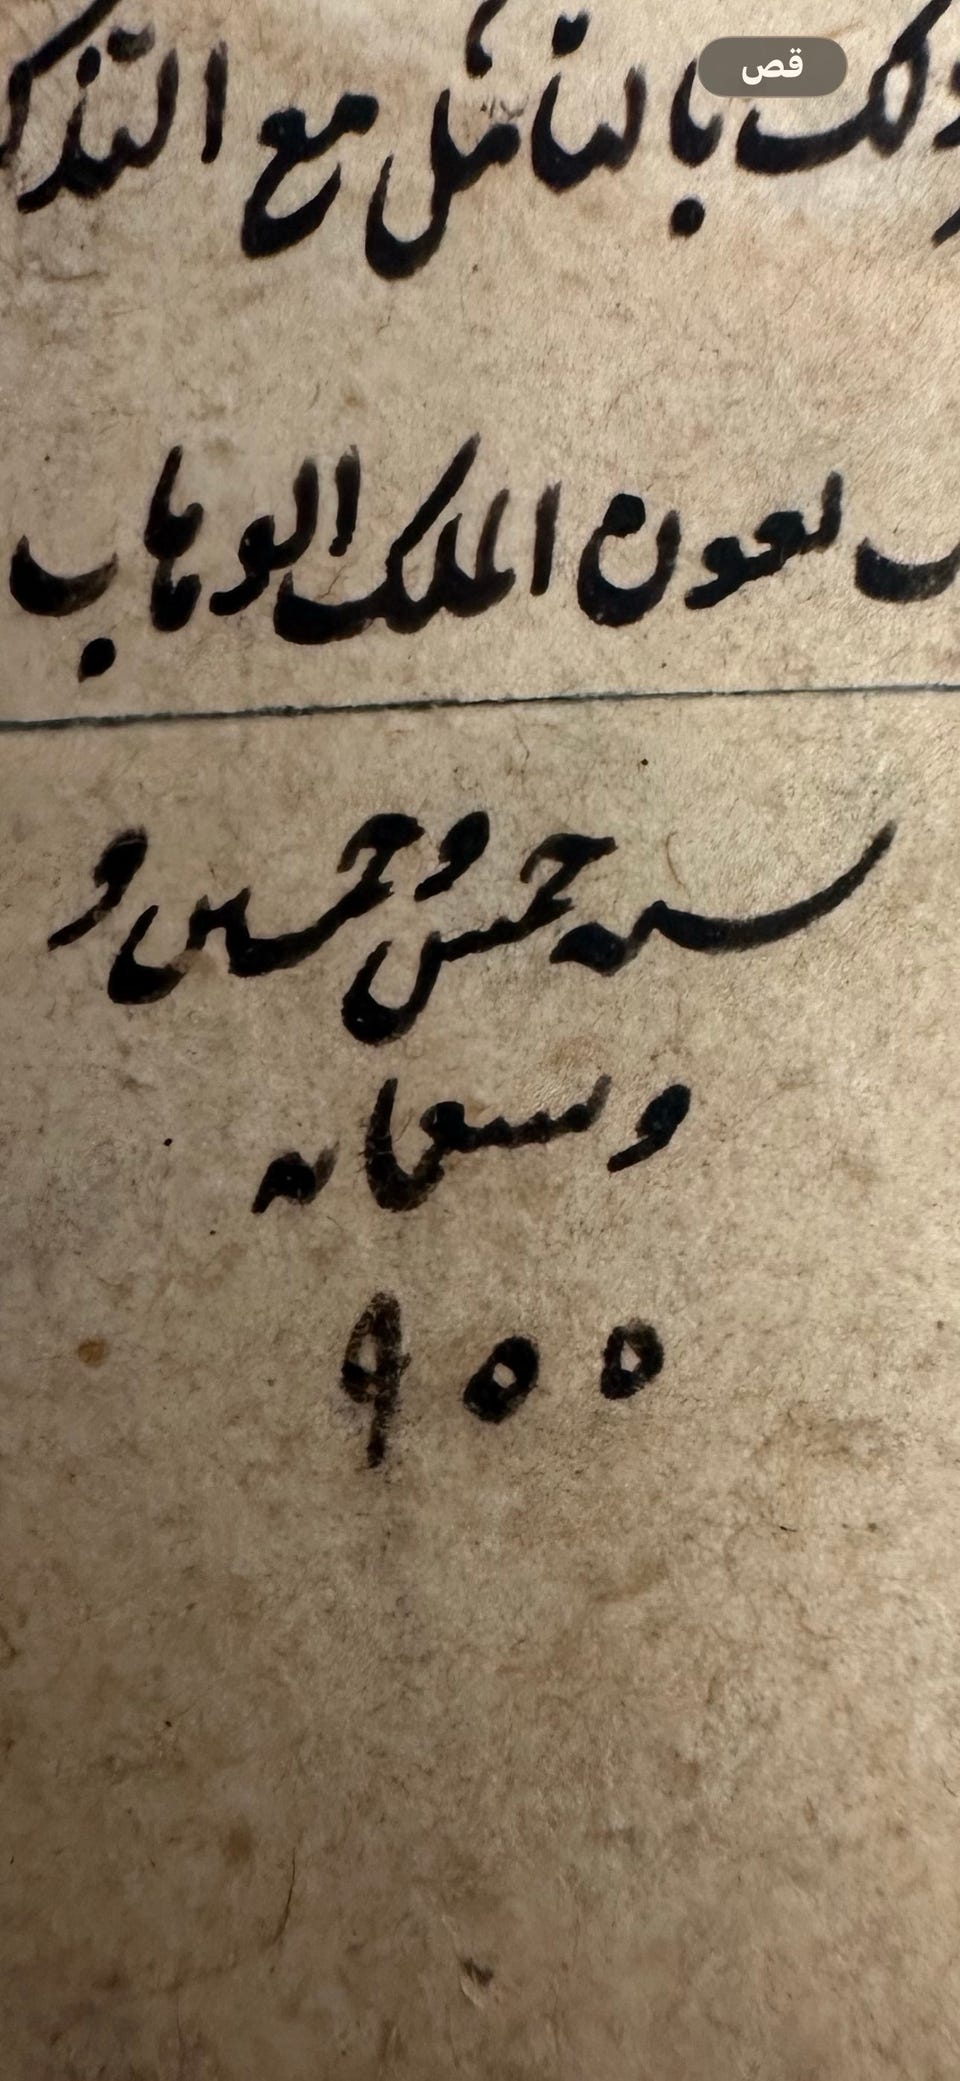 قص
ذلك بالتأمل مع التذكر
بعون الملك الوهاب
سنه خمس و خمسين و
و تسعمائه
۹۵۵